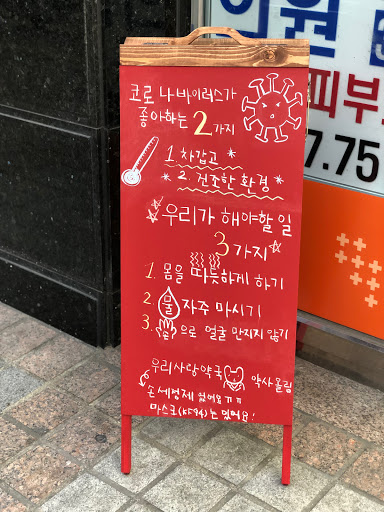 의원
피부
7.75
코로나바이러스가
좋아하는 2가지
1. 차갑고
2. 건조한 환경
우리가 해야할 일
3가지
1. 몸을 따뜻하게 하기
2. 물 자주 마시기
3. 손 으로 얼굴 만지지 않기
우리사랑약국 약사올림
손세정제 없어요ㅠㅠ
마스크(KF94)는 있어요!